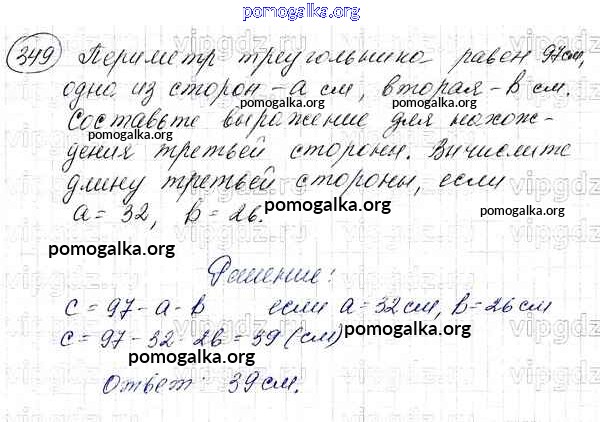 pomogalka.org
349 Периметр треугольника равен 97см,
одна из сторон - a см, вторая - b см.
pomogalka.org pomogalka.org
Составьте выражение для нахож-
дения третьей стороны. Вычислите
длину третьей стороны, если
a = 32, b = 26. pomogalka.org pomogalka.org
pomogalka.org
Решение:
c = 97 - a - b если a = 32 см, b = 26 см
c = 97 - 32 - 26 = 39 (см) pomogalka.org
pomogalka.org
Ответ: 39 см.